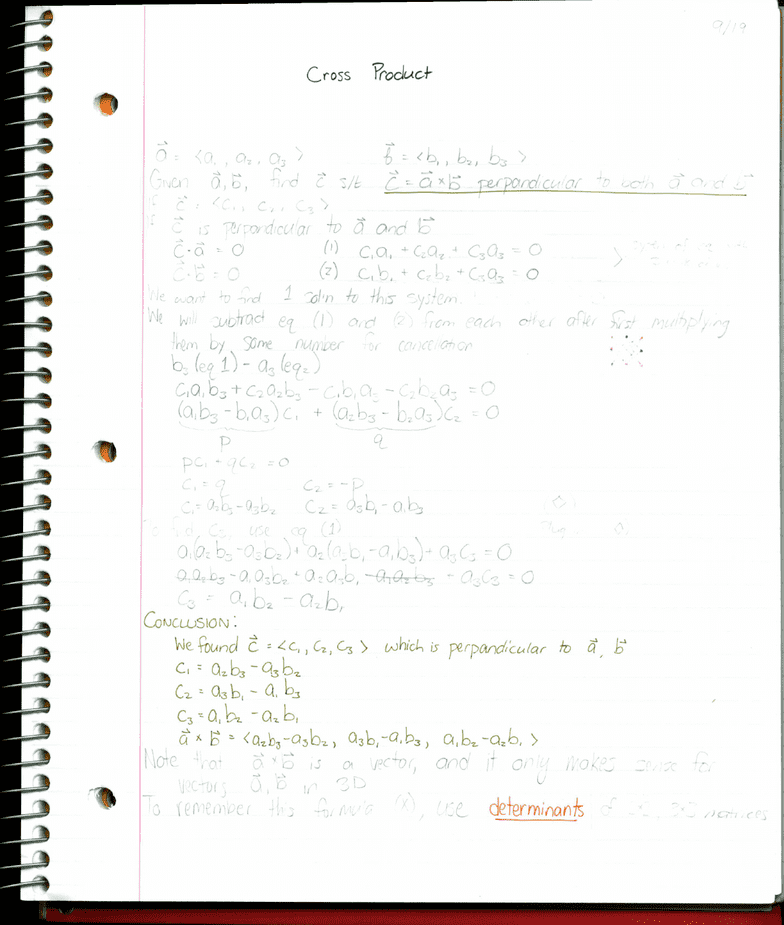 9/19
Cross Product
a⃗ = <a₁, a₂, a₃> b⃗ = <b₁, b₂, b₃>
Given a⃗, b⃗, find c⃗ s/t c⃗ = a⃗ × b⃗ perpandicular to both a⃗ and b⃗
if c⃗ = <c₁, c₂, c₃>
if c⃗ is perpandicular to a⃗ and b⃗
c⃗·a⃗ = 0 (1) c₁a₁ + c₂a₂ + c₃a₃ = 0
c⃗·b⃗ = 0 (2) c₁b₁ + c₂b₂ + c₃a₃ = 0
We want to find 1 soln to this system.
We will subtract eq (1) and (2) from each other after first multiplying
them by some number for cancelation
b₃(eq 1) - a₃(eq₂)
c₁a₁b₃ + c₂a₂b₃ - c₁b₁a₃ - c₂b₂a₃ = 0
(a₁b₃ - b₁a₃)c₁ + (a₂b₃ - b₂a₃)c₂ = 0
p q
pc₁ + qc₂ = 0
c₁ = q c₂ = -p
c₁ = a₂b₃ - a₃b₂ c₂ = a₃b₁ - a₁b₃
To find c₃, use eq (1)
a₁(a₂b₃ - a₃b₂) + a₂(a₃b₁ - a₁b₃) + a₃c₃ = 0
a₁a₂b₃ - a₁a₃b₂ + a₂a₃b₁ - a₁a₂b₃ - a₃c₃ = 0
c₃ = a₁b₂ - a₂b₁
CONCLUSION:
We found c⃗ = <c₁, c₂, c₃> which is perpandicular to a⃗, b⃗
c₁ = a₂b₃ - a₃b₂
c₂ = a₃b₁ - a₁b₃
c₃ = a₁b₂ - a₂b₁
a⃗ × b⃗ = <a₂b₃ - a₃b₂, a₃b₁ - a₁b₃, a₁b₂ - a₂b₁>
Note that a⃗ × b⃗ is a vector, and it only makes sense for
vectors a⃗, b⃗ in 3D
To remember this formula (×), use determinants of matrices